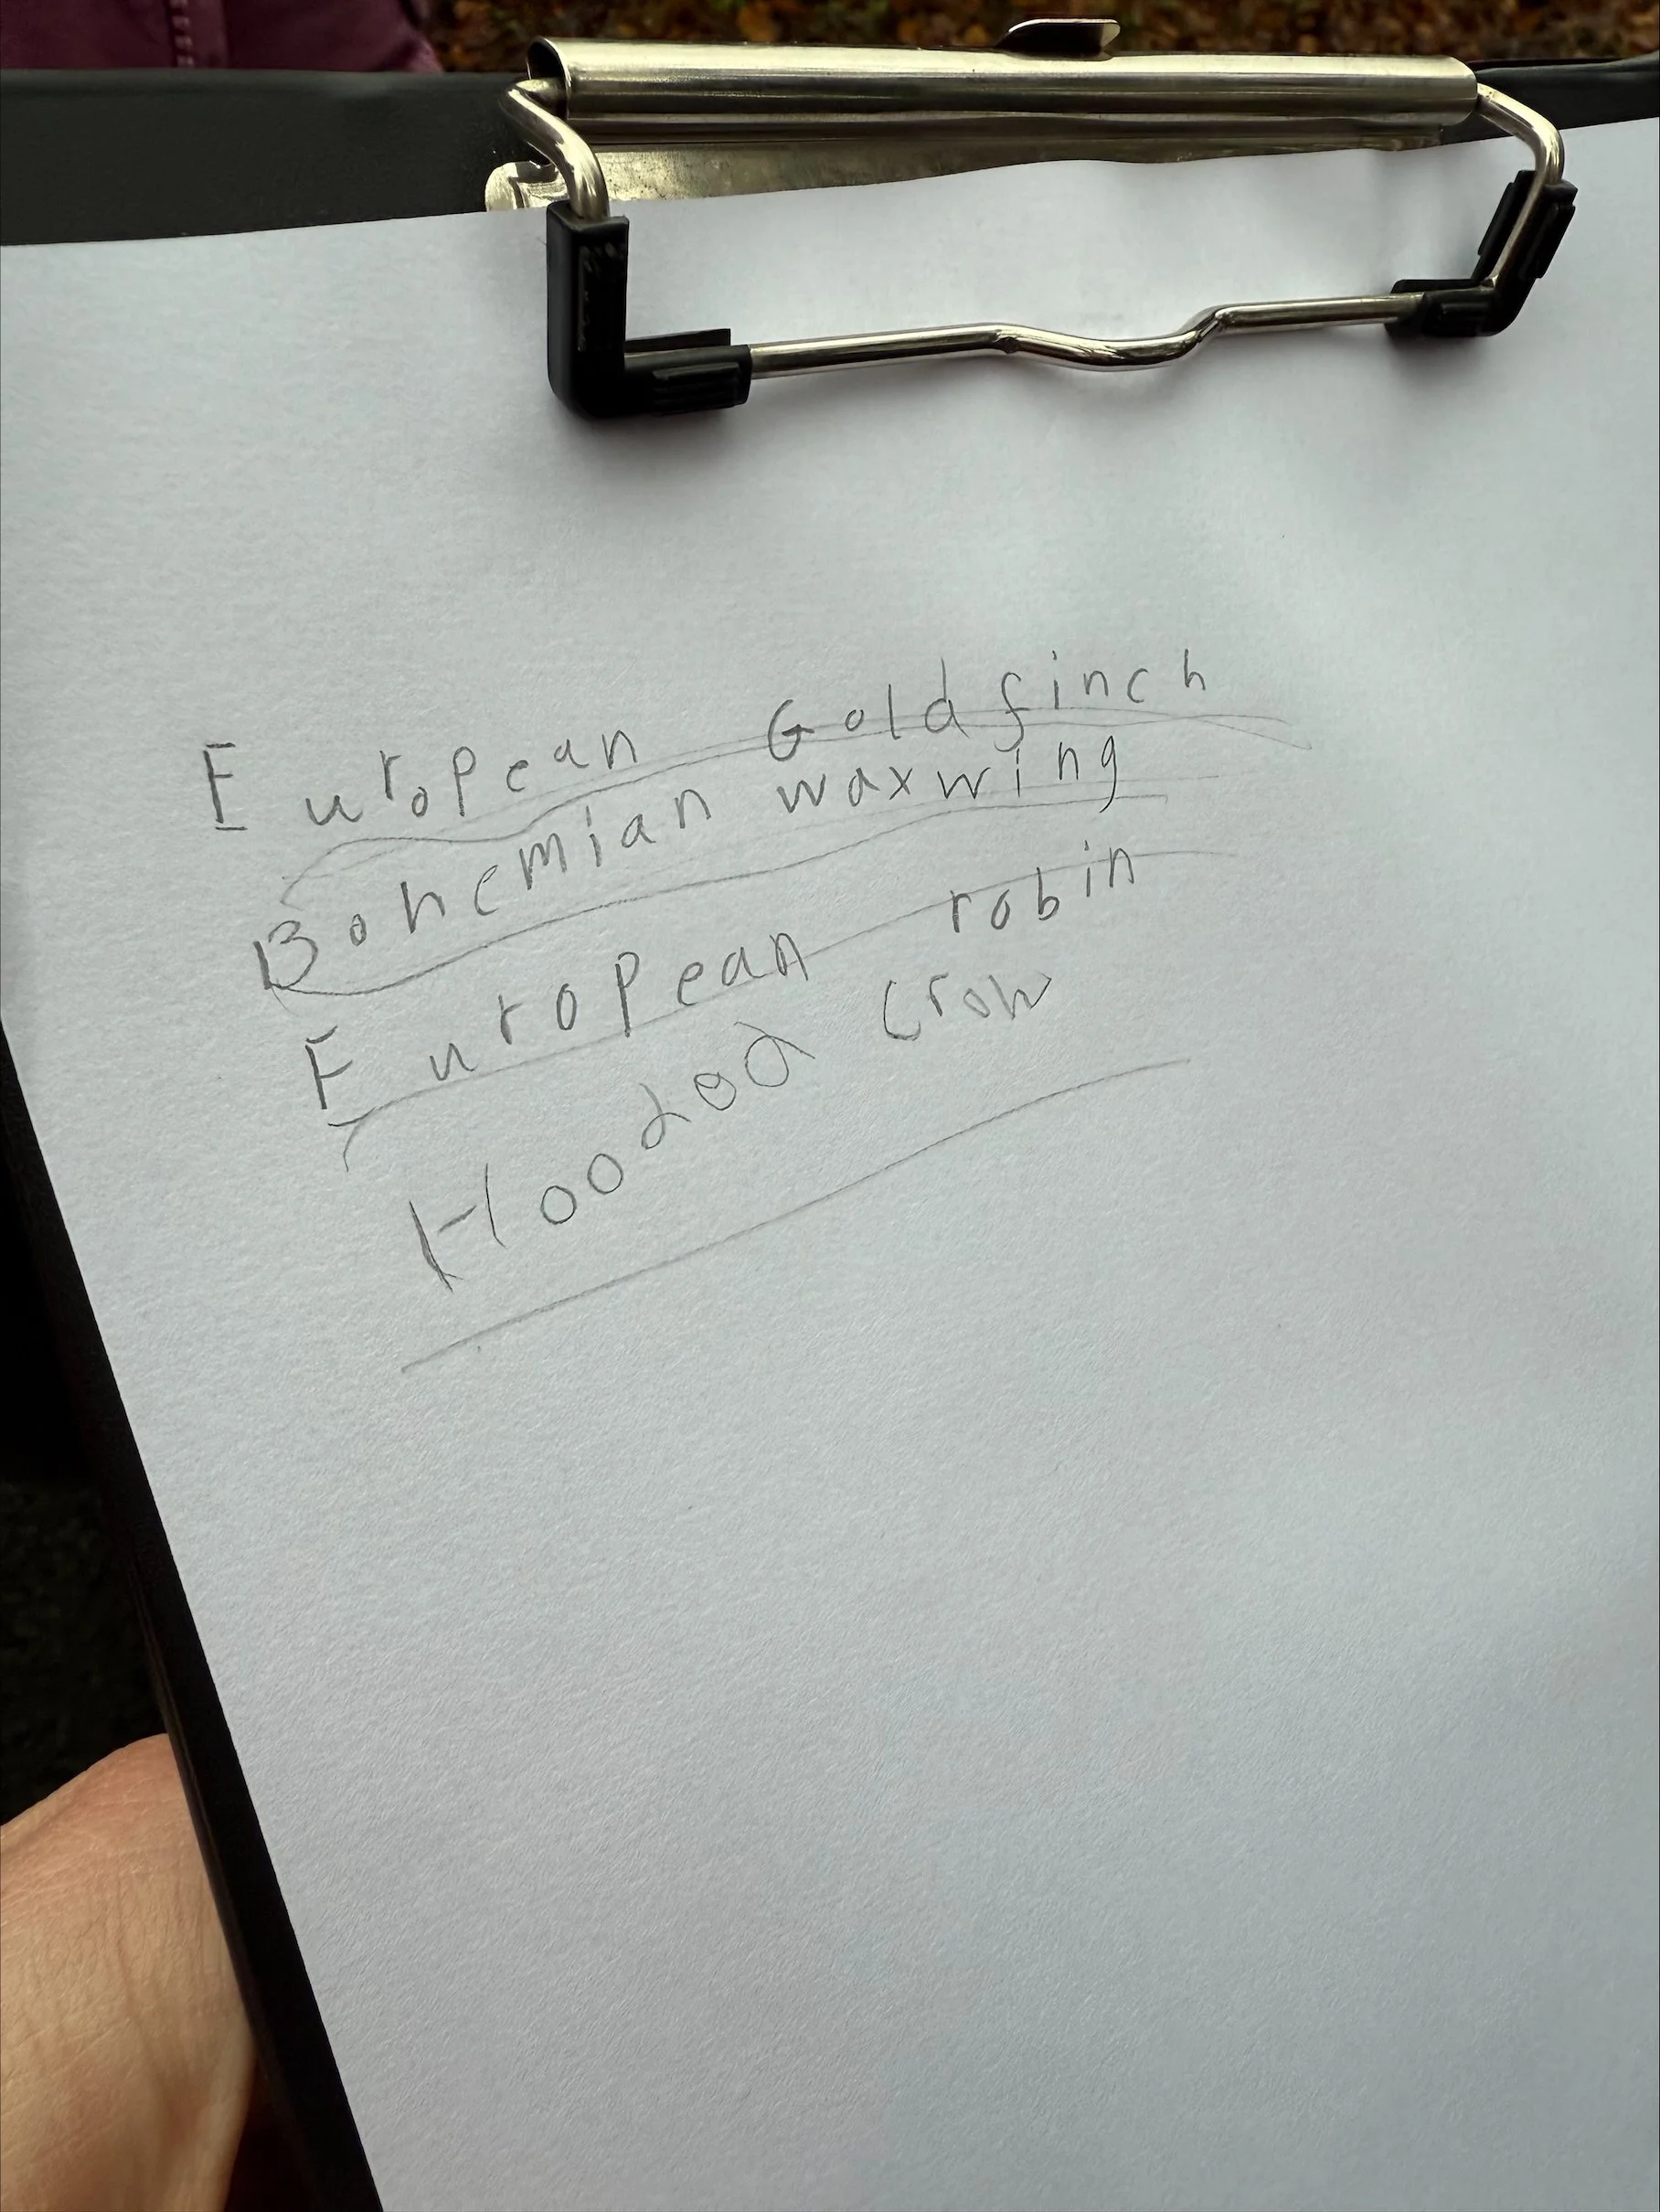 European Goldfinch
Bohemian waxwing
European robin
Hooded crow